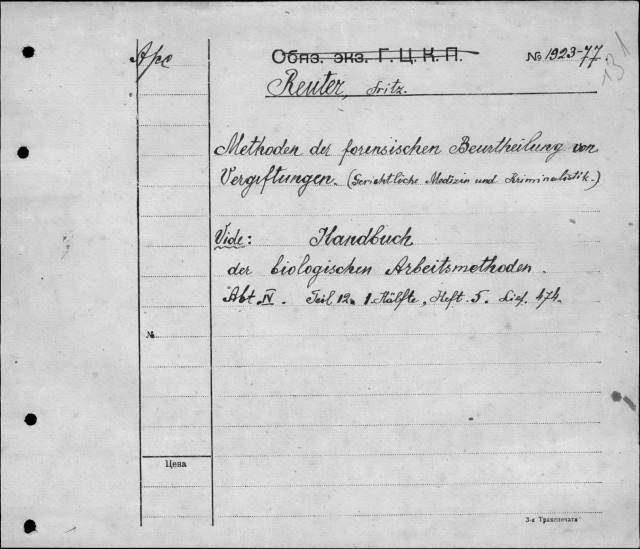 Арх
Обяз. экз. Г. Ц. К. П.
№ 1923-77
131
Reuter, Fritz.
Methoden der forensischen Beurtheilung von
Vergiftungen. (Gerichtliche Medizin und Kriminalistik.)
Vide: Handbuch
der biologischen Arbeitsmethoden.
Abt. IV. Teil 12. 1. Hälfte, Heft. 5. Lief. 474.
№
Цена
3-я Транспечать